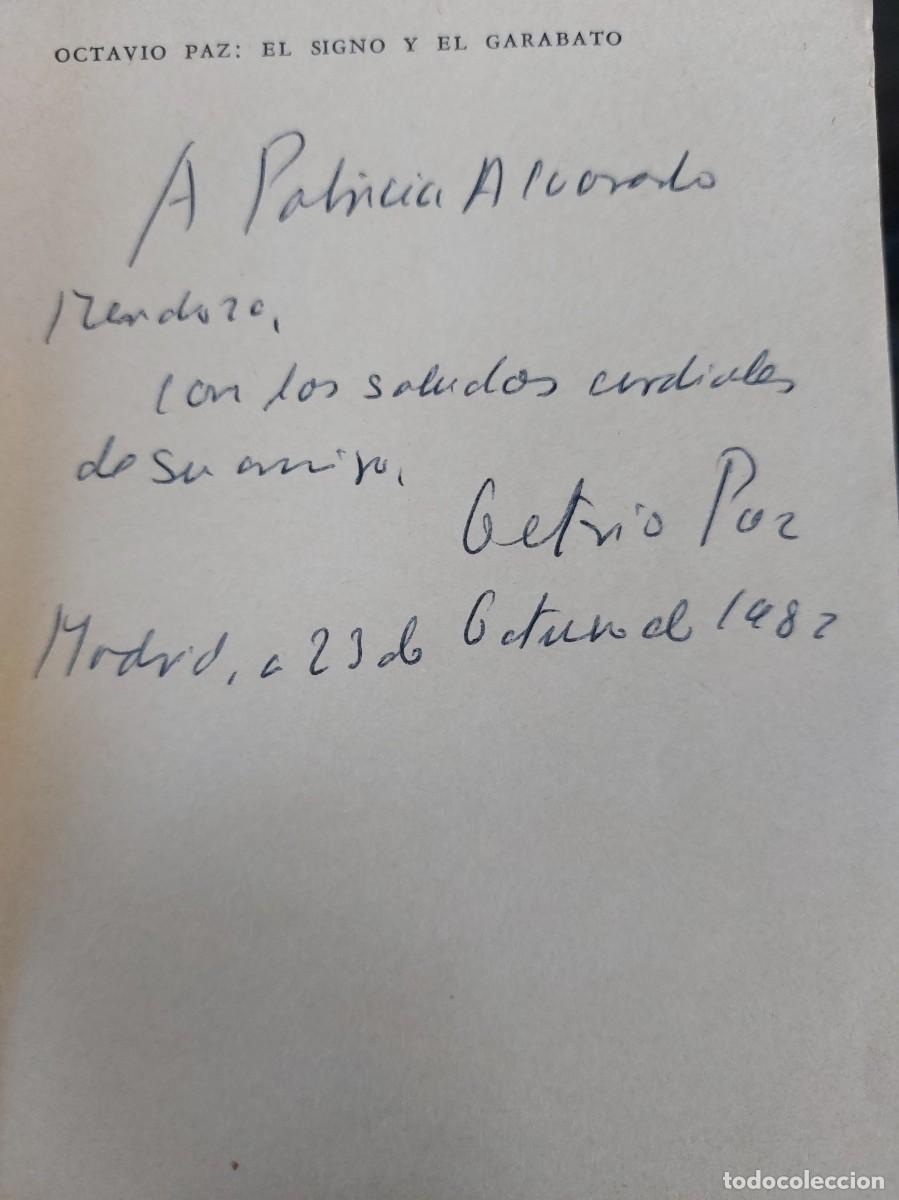 OCTAVIO PAZ: EL SIGNO Y EL GARABATO
A Patricia Alvarado
Mendoza,
con los saludos cordiales
de su amigo,
Octavio Paz
Madrid, a 23 de Octubre de 1982
todocoleccion